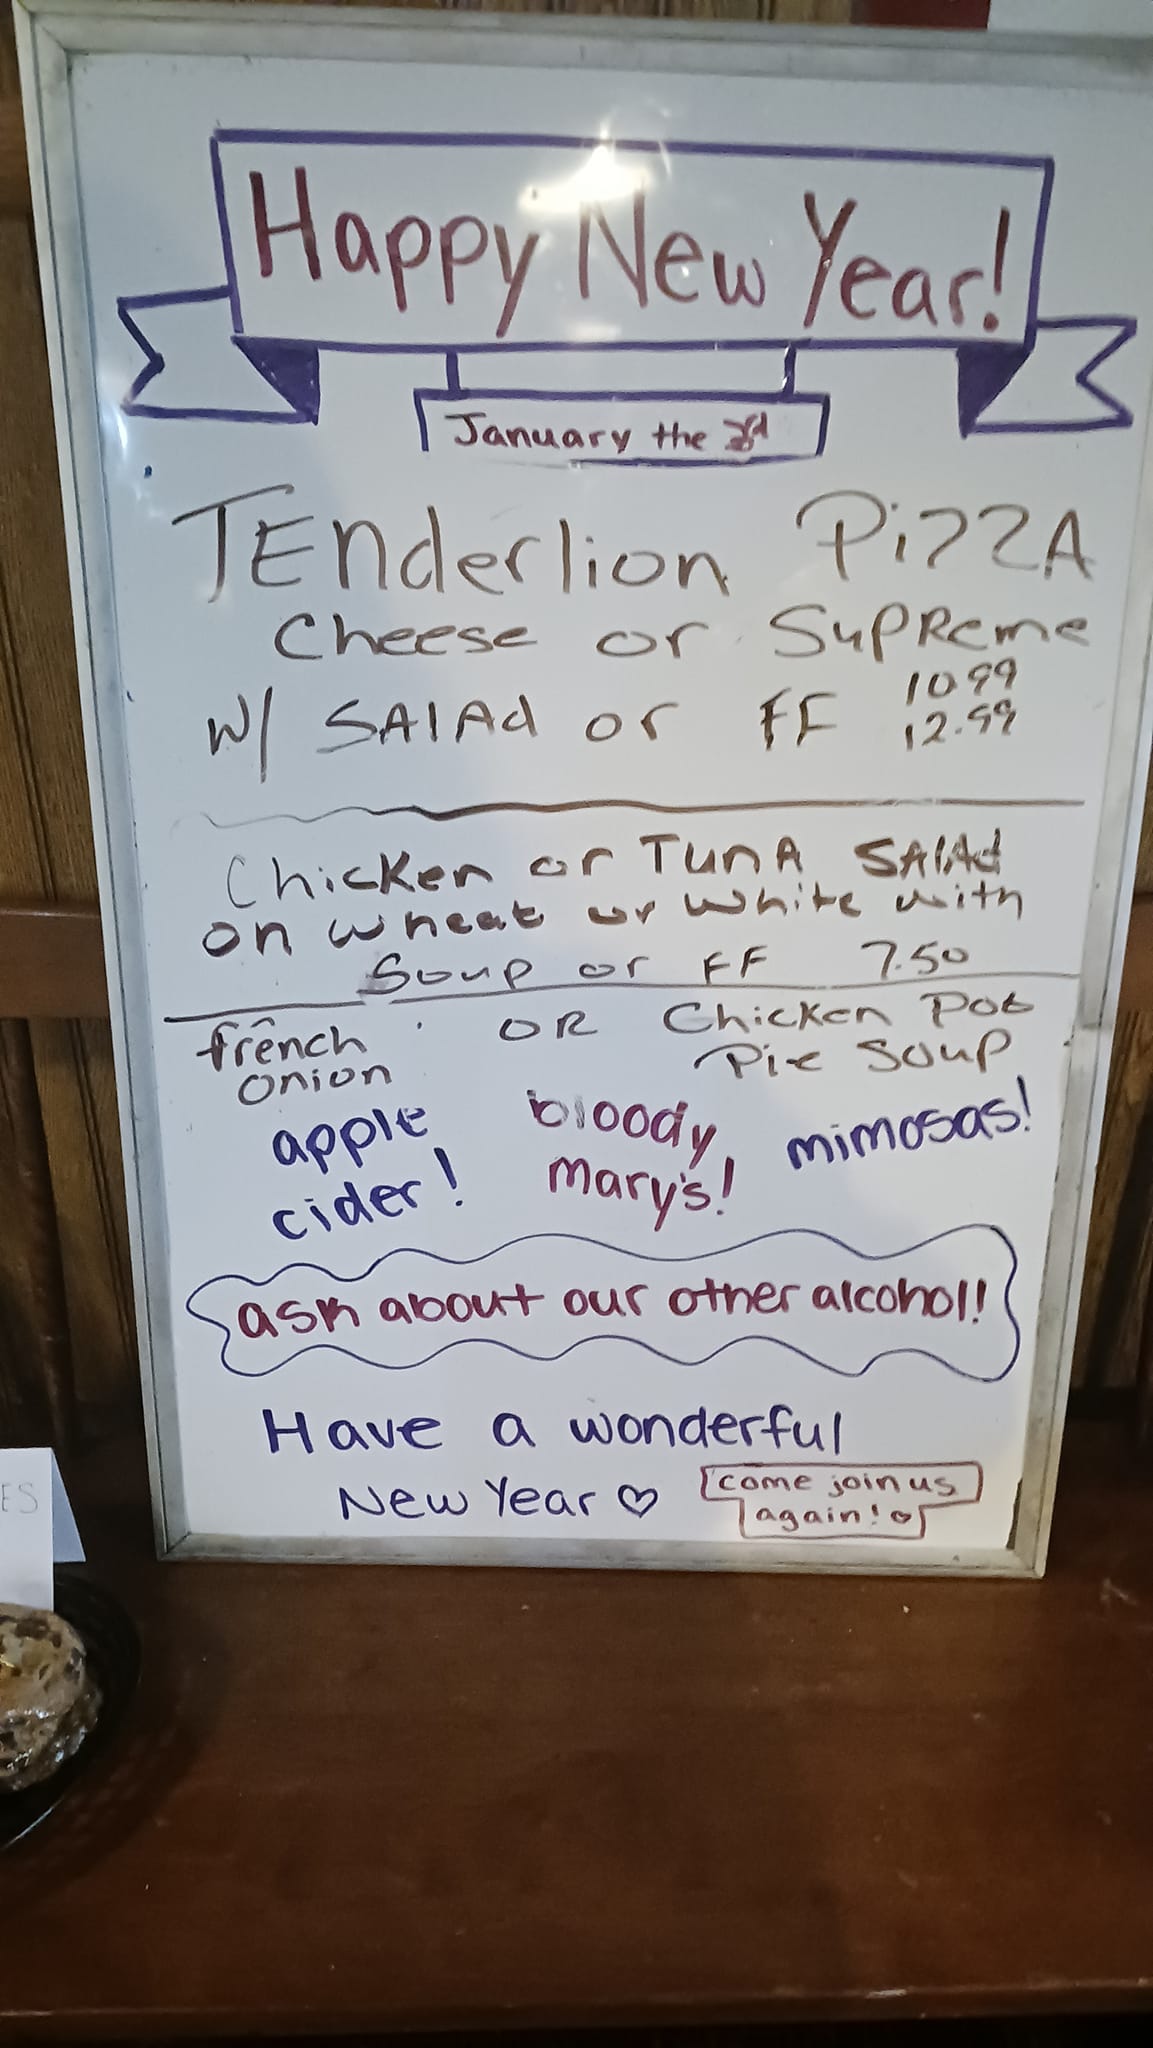 Happy New Year!
January the 3rd
TEnderlion PizzA
Cheese or SuPReme
10.99
W/ SAlAd or FF 12.99
Chicken or TunA SAlAd
on wheat or white with
Soup or FF 7.50
french OR Chicken Pot
onion Pie Soup
apple bloody mimosas!
cider! mary's!
ask about our other alcohol!
Have a wonderful
New Year ♡ come join us
again! ♡
ES